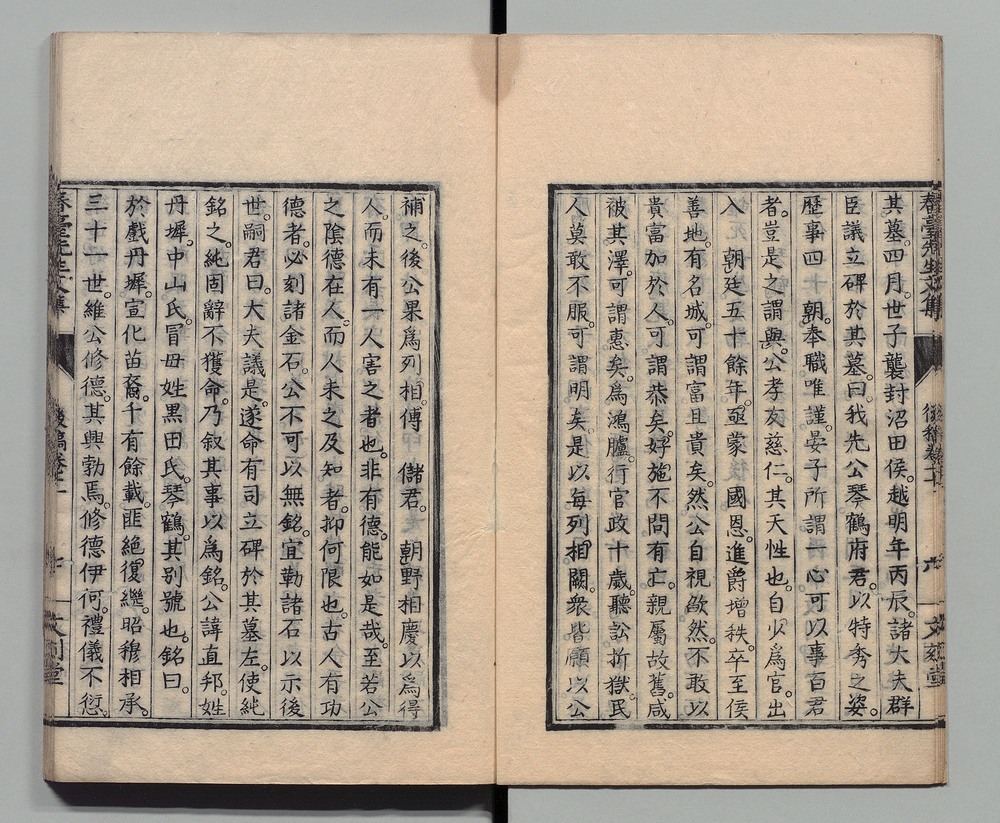 其墓。四月。世子襲封沼田侯。越明年丙辰。諸大夫群
臣議立碑於其墓。曰。我先公琴鶴府君。以特秀之姿。
歷事四 朝。奉職唯謹。晏子所謂一心可以事百君
者。豈是之謂與。公孝友慈仁。其天性也。自少爲官。出
入 朝廷五十餘年。亟蒙 國恩。進爵增秩。卒至侯
善地。有名城。可謂富且貴矣。然公自視欿然。不敢以
貴富加於人。可謂恭矣。好施不問有亡。親屬故舊。咸
被其澤。可謂惠矣。爲鴻臚。行官政十歲。聽訟折獄。民
人莫敢不服。可謂明矣。是以每列相闕。衆皆願以公
補之。後公果爲列相。傅 儲君。 朝野相慶以爲得
人。而未有一人害之者也。非有德。能如是哉。至若公
之陰德在人。而人未之及知者。抑何限也。古人有功
德者。必刻諸金石。公不可以無銘。宜勒諸石以示後
世。嗣君曰。大夫議是。遂命有司立碑於其墓左。使純
銘之。純固辭不獲命。乃叙其事以爲銘。公諱直邦。姓
丹墀。中山氏。冒母姓黑田氏。琴鶴。其别號也。銘曰。
於戲丹墀。宣化苗裔。千有餘載。匪絕復繼。昭穆相承。
三十一世。維公修德。其興勃焉。修德伊何。禮儀不愆。
春臺先生文集
後稿卷十一
文刻堂